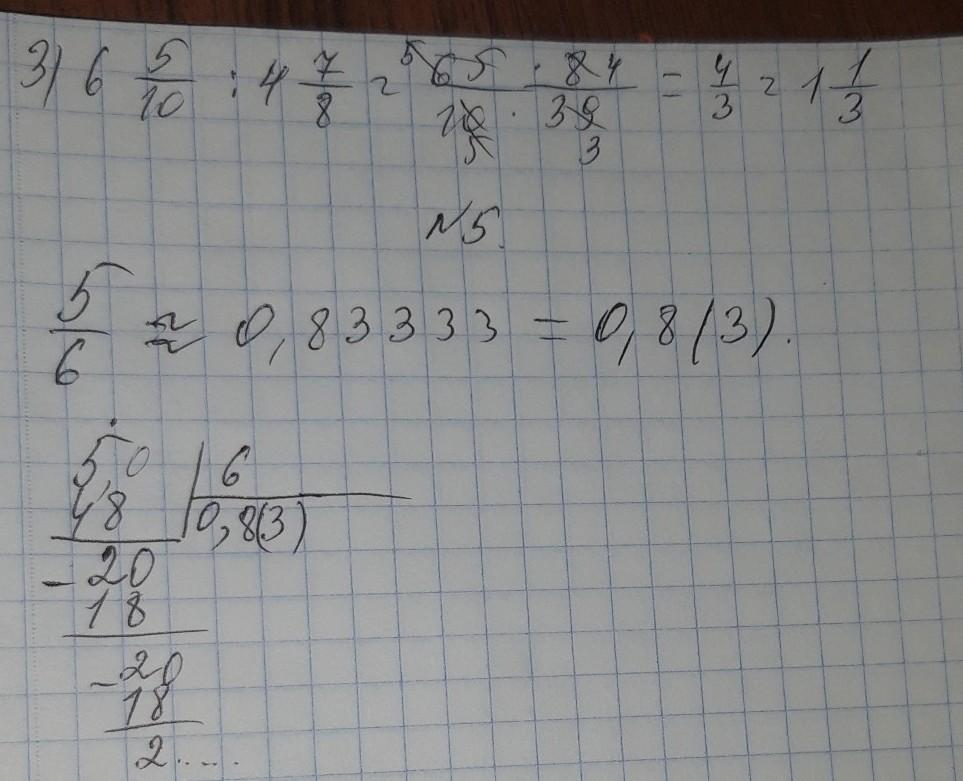 3) 6 5/10 : 4 7/8 = 65 · 8 / 10 · 39 = 4/3 = 1 1/3
N5.
5/6 ≈ 0,83333 = 0,8(3).
5,0 | 6
48 | 0,8(3)
- 20
18
- 20
18
2.....